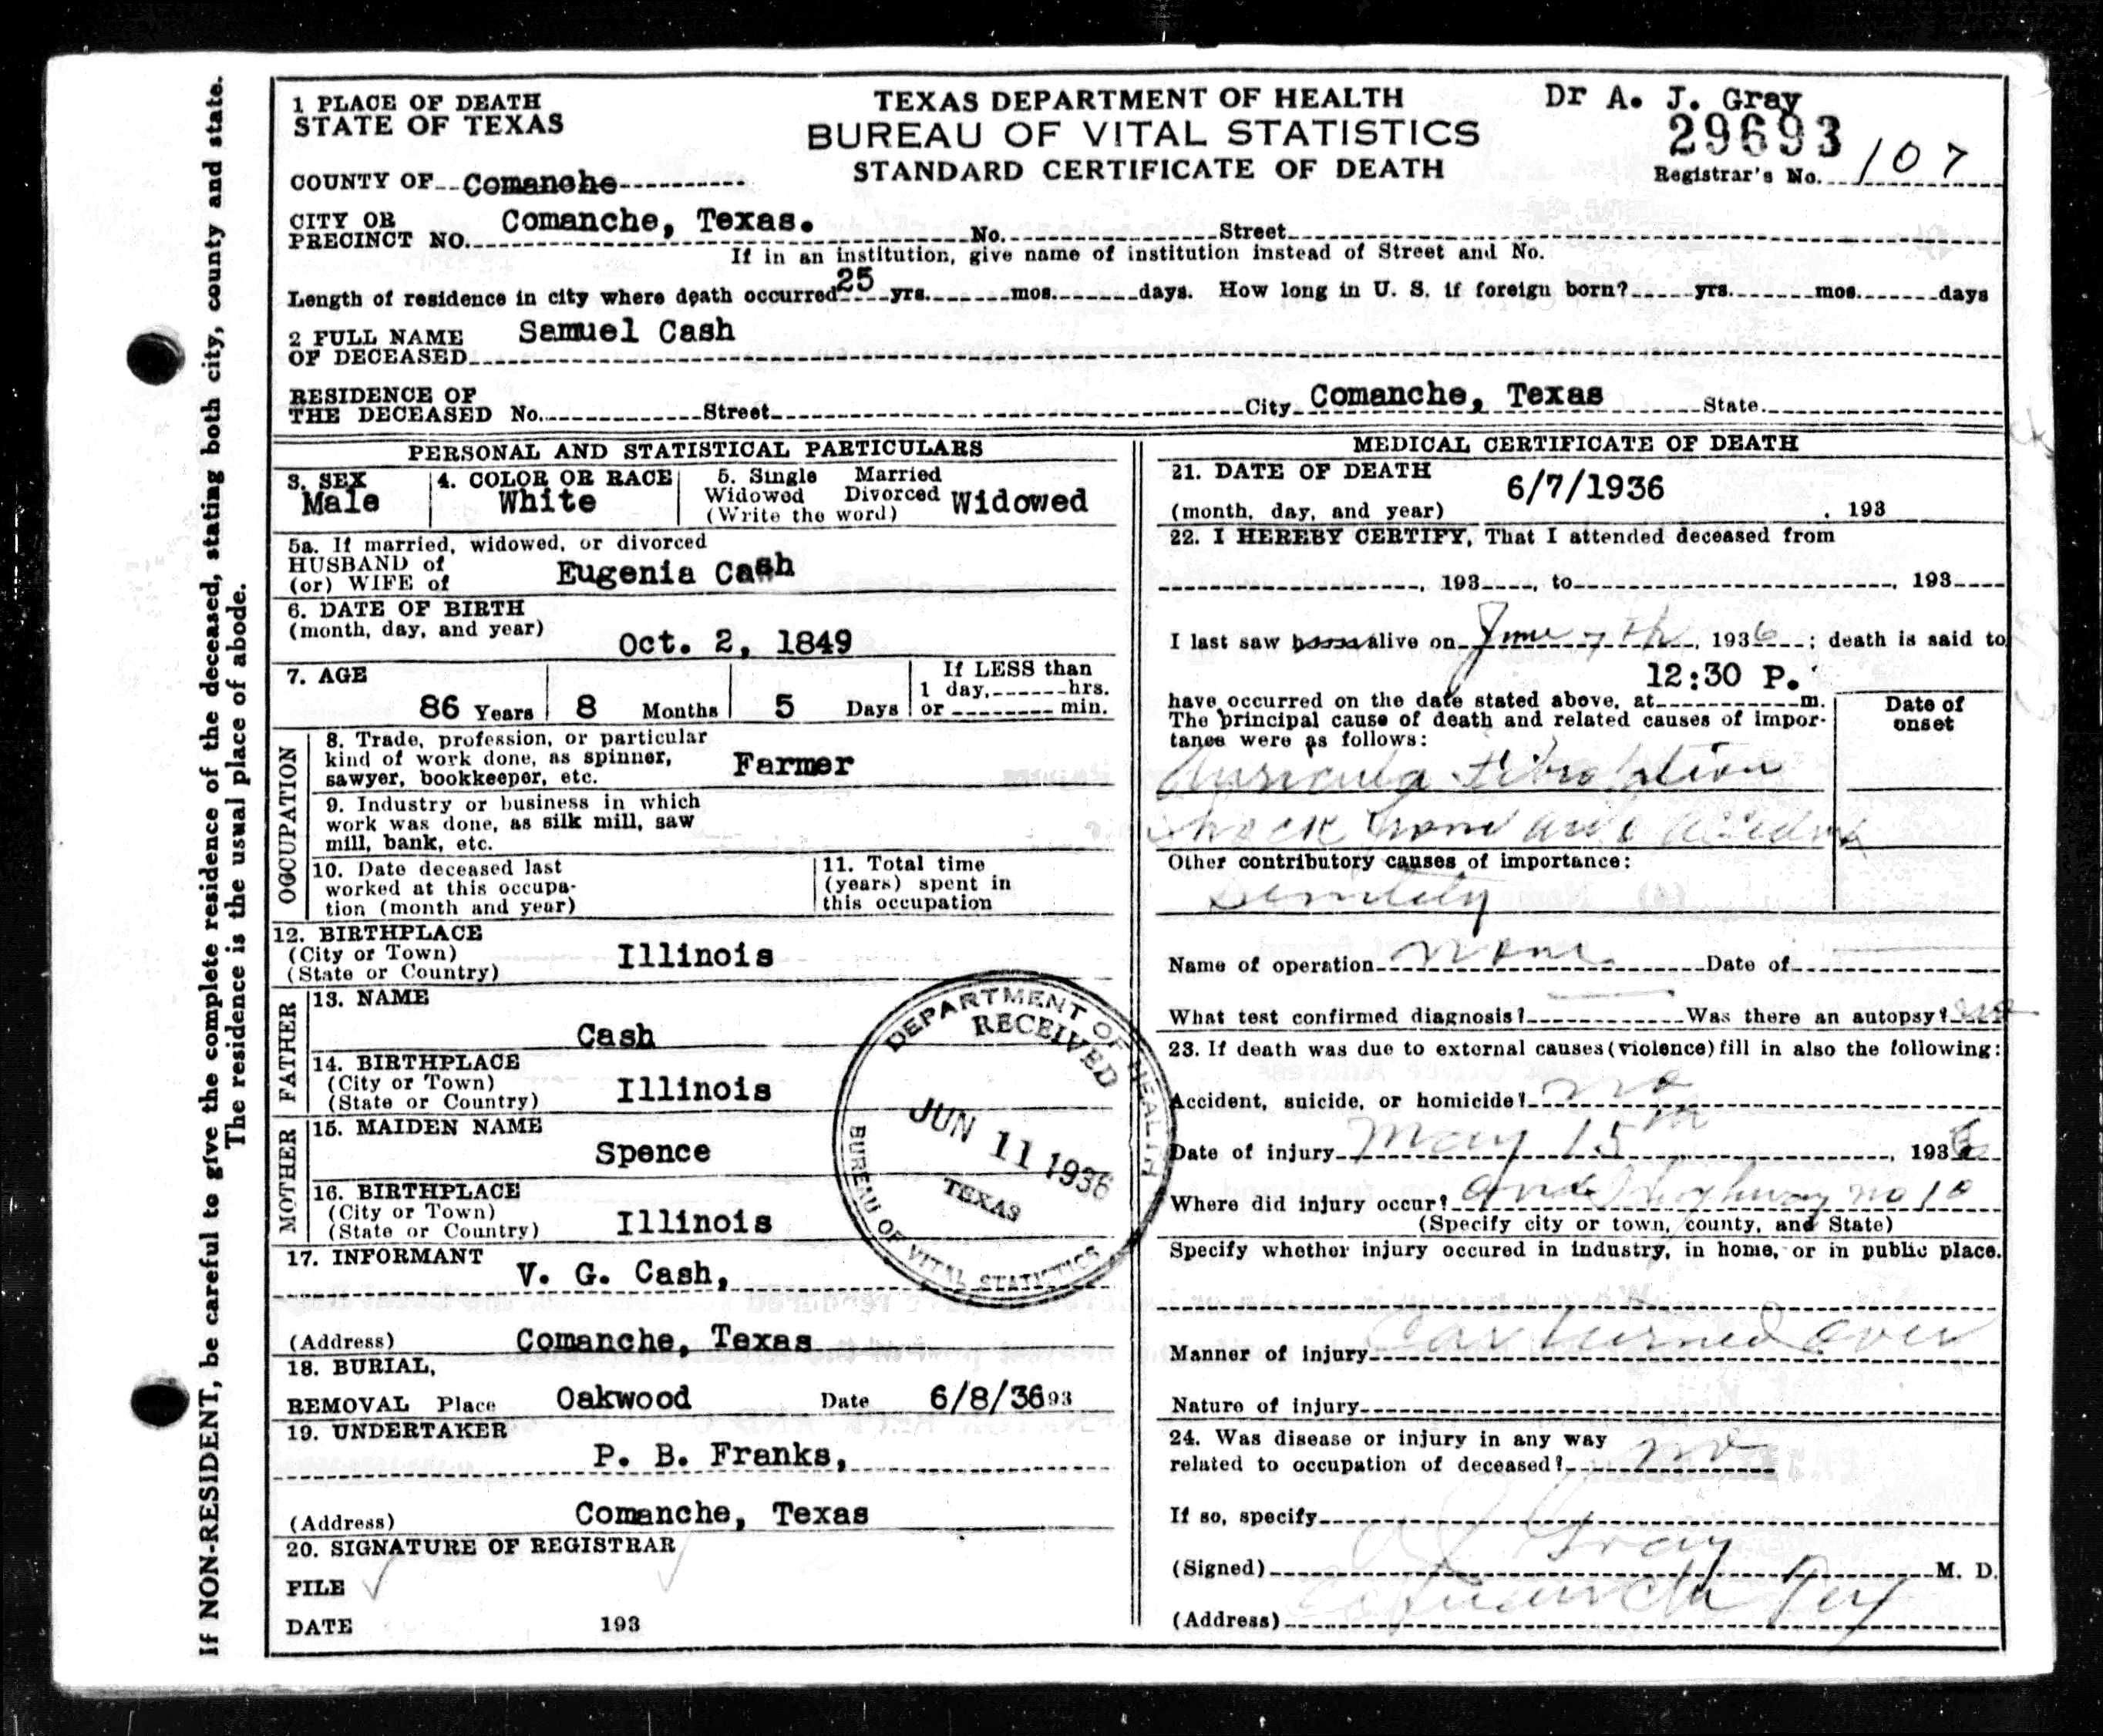 If NON-RESIDENT, be careful to give the complete residence of the deceased, stating both city, county and state.
The residence is the usual place of abode.
1 PLACE OF DEATH
STATE OF TEXAS
TEXAS DEPARTMENT OF HEALTH
BUREAU OF VITAL STATISTICS
STANDARD CERTIFICATE OF DEATH
Dr A. J. Gray
29693
Registrar's No. 107
COUNTY OF Comanche
CITY OR
PRECINCT NO. Comanche, Texas. No. Street
If in an institution, give name of institution instead of Street and No.
Length of residence in city where death occurred 25 yrs. mos. days. How long in U. S. if foreign born? yrs. mos. days
2 FULL NAME
OF DECEASED Samuel Cash
RESIDENCE OF
THE DECEASED No. Street City Comanche, Texas State
PERSONAL AND STATISTICAL PARTICULARS
3. SEX
Male
4. COLOR OR RACE
White
5. Single Married
Widowed Divorced
(Write the word) Widowed
5a. If married, widowed, or divorced
HUSBAND of
(or) WIFE of Eugenia Cash
6. DATE OF BIRTH
(month, day, and year) Oct. 2, 1849
7. AGE
86 Years 8 Months 5 Days
If LESS than
1 day, hrs.
or min.
OCCUPATION
8. Trade, profession, or particular
kind of work done, as spinner,
sawyer, bookkeeper, etc. Farmer
9. Industry or business in which
work was done, as silk mill, saw
mill, bank, etc.
10. Date deceased last
worked at this occupa-
tion (month and year)
11. Total time
(years) spent in
this occupation
12. BIRTHPLACE
(City or Town)
(State or Country) Illinois
FATHER
13. NAME
Cash
14. BIRTHPLACE
(City or Town)
(State or Country) Illinois
MOTHER
15. MAIDEN NAME
Spence
16. BIRTHPLACE
(City or Town)
(State or Country) Illinois
17. INFORMANT
V. G. Cash,
(Address) Comanche, Texas
18. BURIAL,
REMOVAL Place Oakwood Date 6/8/36 93
19. UNDERTAKER
P. B. Franks,
(Address) Comanche, Texas
20. SIGNATURE OF REGISTRAR
FILE
DATE 193
DEPARTMENT OF HEALTH
RECEIVED
JUN 11 1936
TEXAS
BUREAU OF VITAL STATISTICS
MEDICAL CERTIFICATE OF DEATH
21. DATE OF DEATH
(month, day, and year) 6/7/1936 , 193
22. I HEREBY CERTIFY, That I attended deceased from
, 193 , to , 193
I last saw alive on June 7th, 1936; death is said to
12:30 P.
have occurred on the date stated above, at m.
The principal cause of death and related causes of impor-
tance were as follows:
Date of
onset
Auricula Fibrolation
Shock from accident
Other contributory causes of importance:
Senility
Name of operation none Date of
What test confirmed diagnosis? Was there an autopsy? no
23. If death was due to external causes (violence) fill in also the following:
Accident, suicide, or homicide? no
Date of injury May 15th, 1936
Where did injury occur? Highway no 10
(Specify city or town, county, and State)
Specify whether injury occured in industry, in home, or in public place.
Manner of injury Car turned over
Nature of injury
24. Was disease or injury in any way
related to occupation of deceased? no
If so, specify
(Signed) A J Gray M. D.
(Address) Comanche Tex